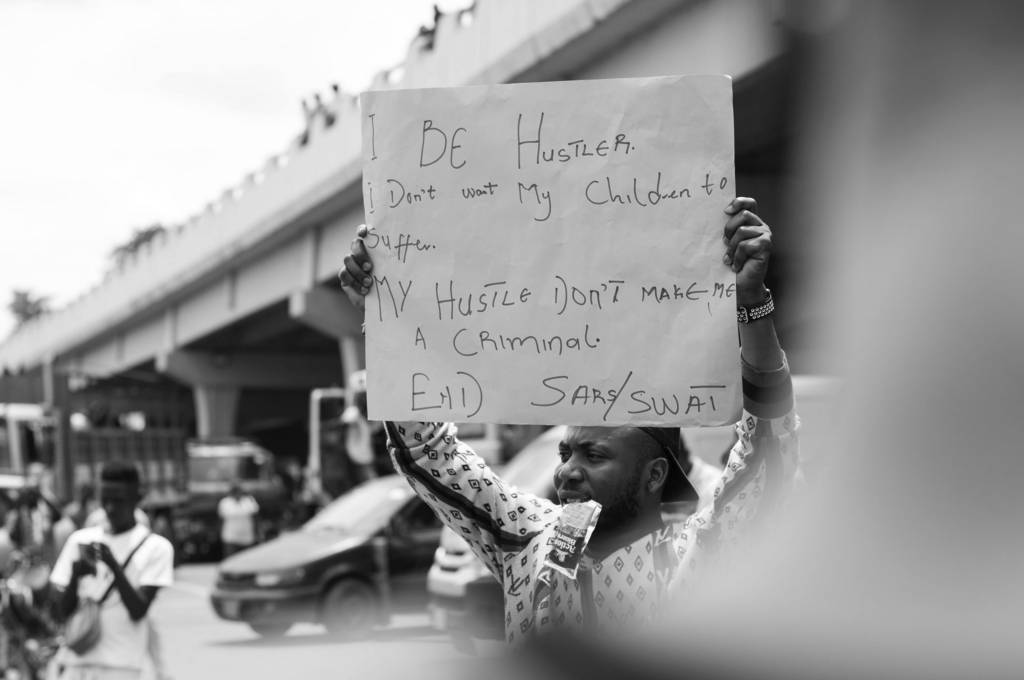 I BE HUSTLER.
I Don't want My Children to
Suffer.
MY HUSTLE DON'T MAKE ME
A Criminal.
END SARS/SWAT
Active